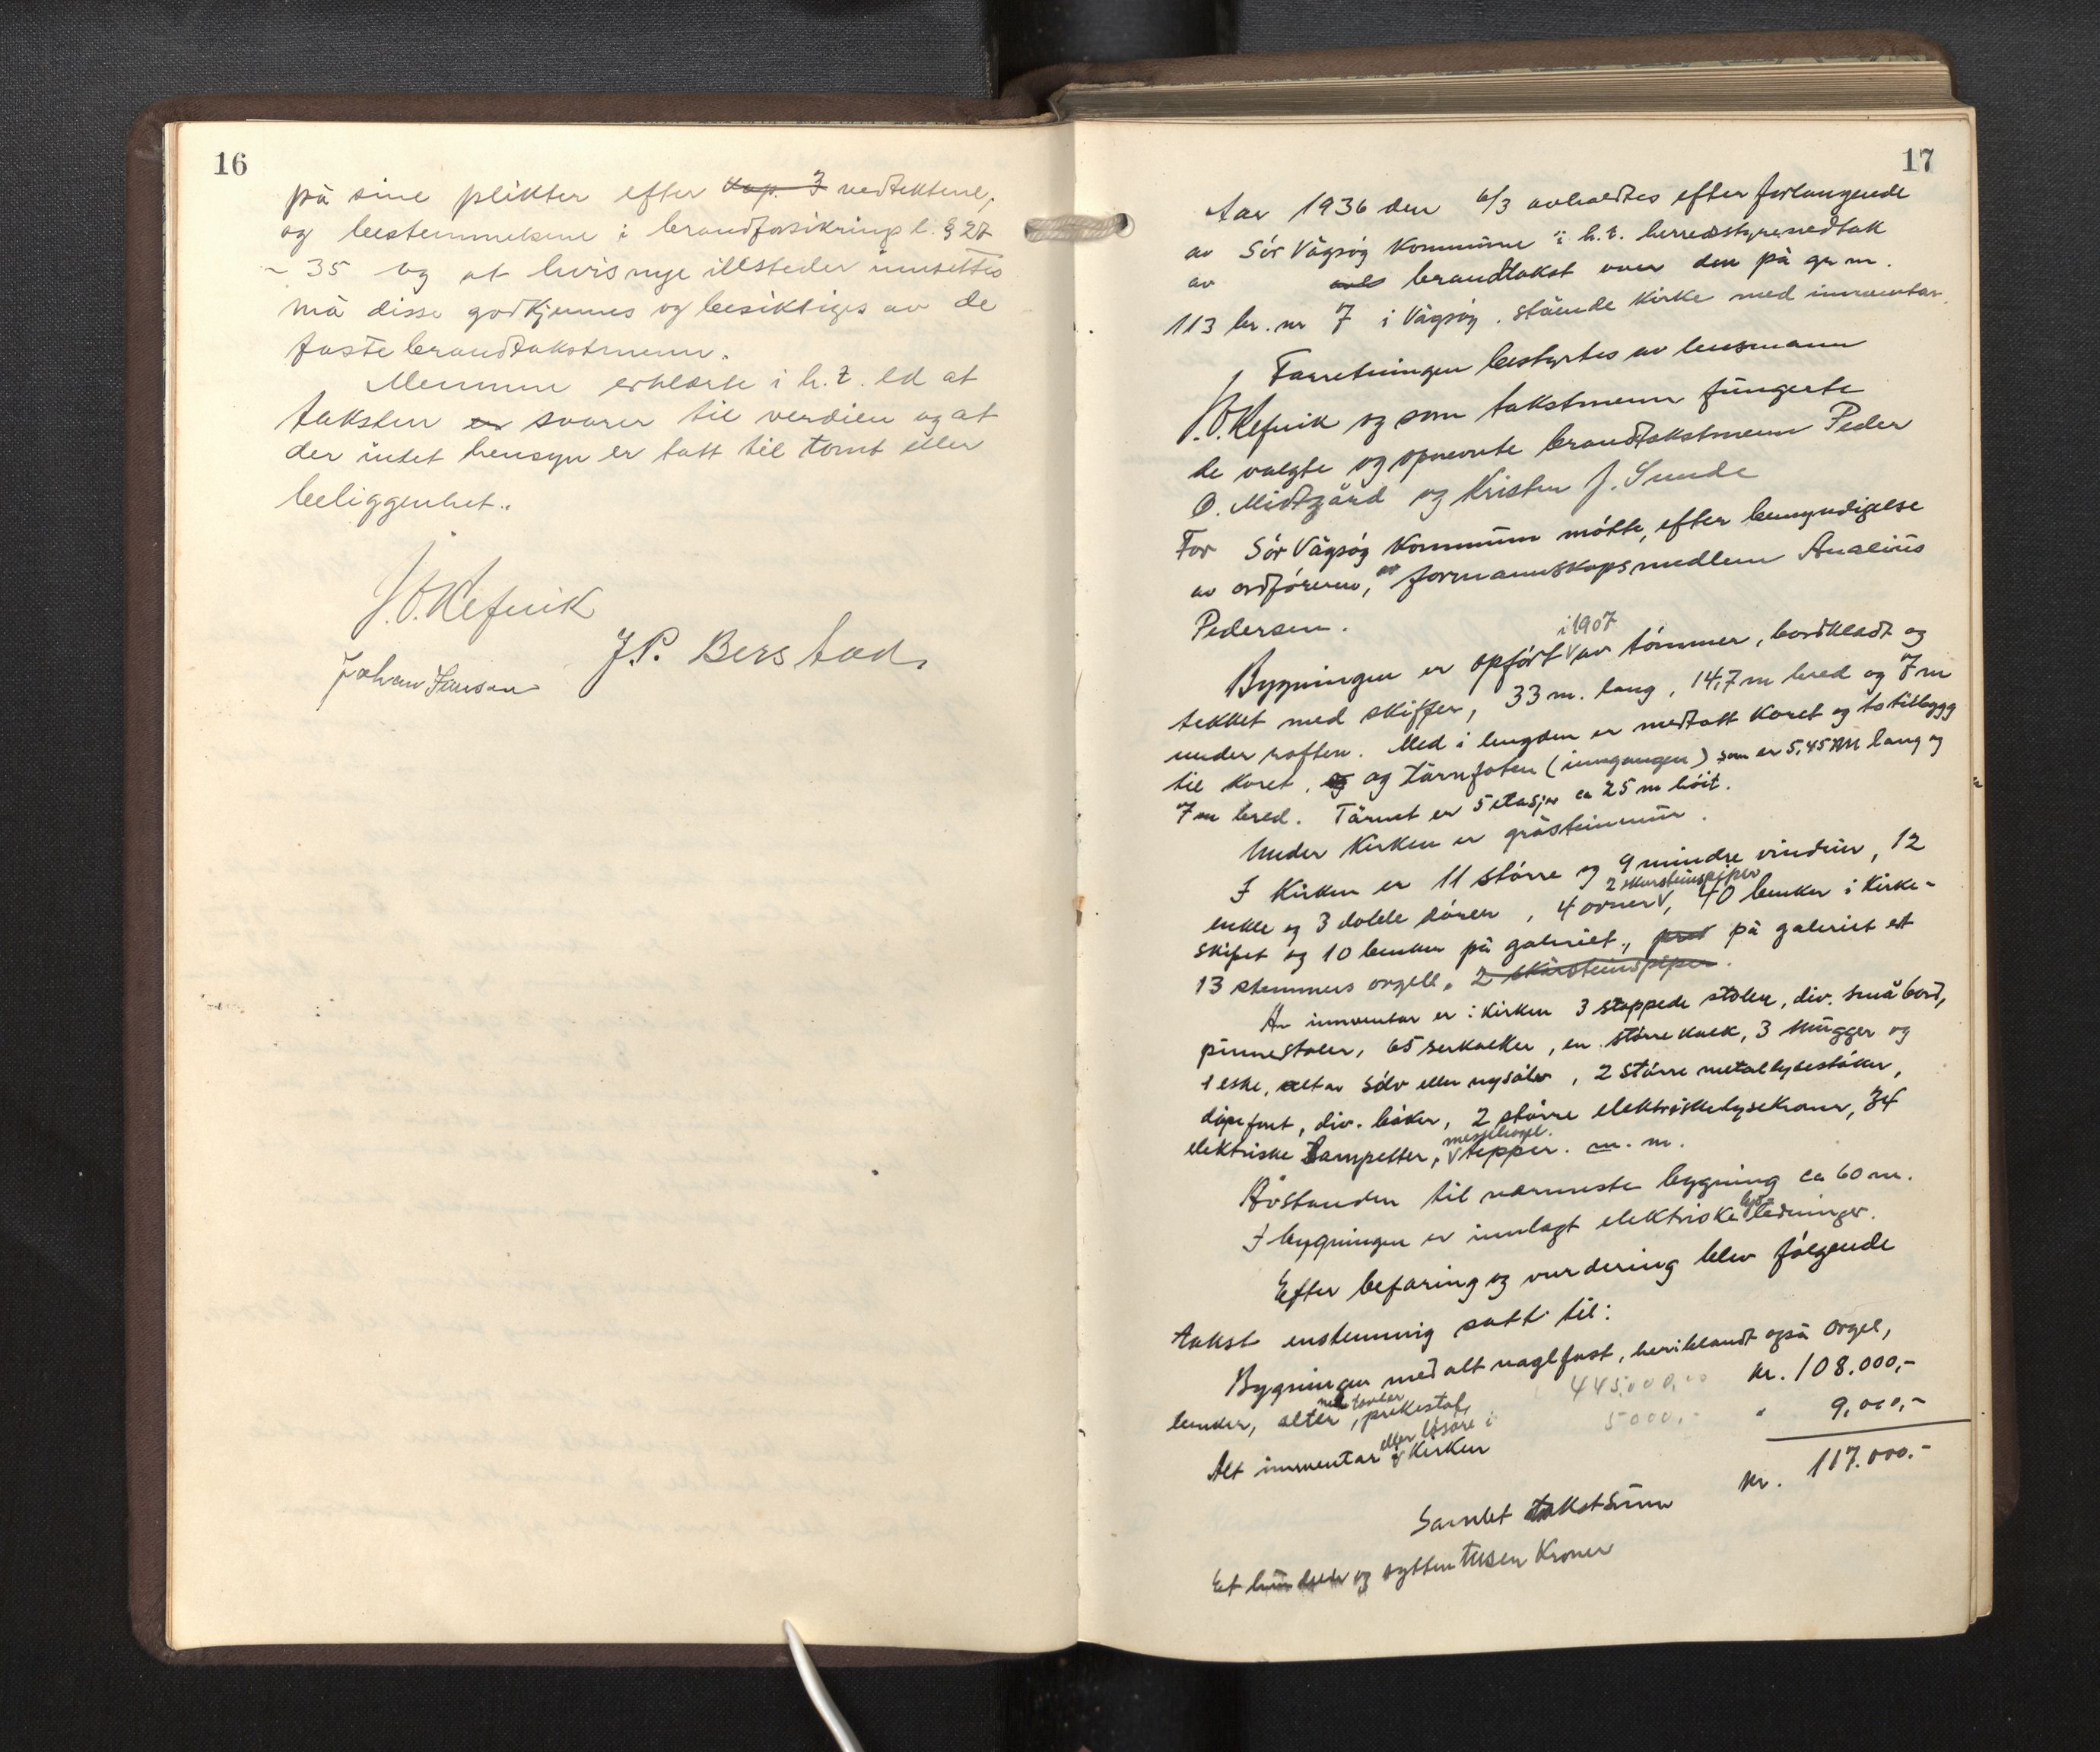 16
på sine plikter efter kap. 3 vedtektene,
og bestemmelsene i brandforsikringsl. § 27
- 35 og at hvis nye illsteder innsettes
må disse godkjennes og besiktiges av de
faste brandtakstmenn.
Mennene erklærte i h. t. ed at
taksten er svarer til verdien og at
der intet hensyn er tatt til tomt eller
beliggenhet.
J. O. Refvik
J. P. Berstad
Johan Hansen
17
Aar 1936 den 6/3 avholdtes efter forlangende
av Sör Vågsöy Kommune i h. t. herredsstyrevedtak
av brandtakst over den på gr. nr.
113 br. nr 7 i Vågsöy stående kirke med inventar.
Forretningen bestyrtes av lensmann
J. O. Refvik og som takstmenn fungerte
de valgte og opnevnte brandtakstmenn Peder
O. Midtgård og Kristen J. Sunde
For Sör Vågsöy Kommune mötte, efter bemyndigelse
av ordföreren, av formannskapsmedlem Anselius
Pedersen.
i 1907
Bygningen er opfört av tömmer, bordkledt og
tekket med skiffer, 33 m. lang, 14,7 m bred og 7 m
under raften. Med i lengden er medtatt koret og to tilbygg
til koret, og og tårnfoten (inngangen) som er 5,45 m lang og
7 m bred. Tårnet er 5 etasjer ca 25 m höit.
Under Kirken er gråsteinmur.
I Kirken er 11 större og 9 mindre vinduer, 12
2 skorsteinspiper
enkle og 3 doble dörer, 4 ovner, 40 benker i Kirke-
skipet og 10 benker på galeriet, på galeriet et
13 stemmers orgell. 2 skorsteinspiper.
Av innventar er i kirken 3 stoppede stoler, div. små bord,
pinnestoler, 65 serkalker, en större kalk, 3 mugger og
1 eske, alt av sölv eller nysölv, 2 större metallysestaker,
döpefont, div. böker, 2 större elektriske lysekroner, 34
messehagel.
elektriske lampetter, tepper. m. m.
Avstanden til nærmeste bygning ca 60 m.
lys-
I bygningen er innlagt elektriske ledninger.
Efter befaring og vurdering blev fölgende
takst enstemmig satt til:
Bygningen med alt naglfast, heriblandt også orgel,
benker, alter med tavler, prekestol, 445.000,00 kr. 108.000,-
Alt innventar eller lösöre i Kirken 5000,- " 9,000,-
Samlet takstsum kr. 117.000.-
Et hundrede og sytten tusen Kroner